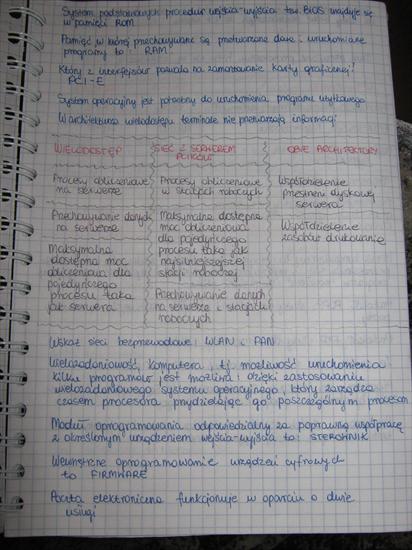 System podstawowych procedur wejścia-wyjścia tzw. BIOS znajduje się
w pamięci ROM
Pamięć w której przechowywane są przetwarzane dane i uruchamiane
programy to: RAM
Który z interfejsów pozwala na zamontowanie karty graficznej?
PCI-E
System operacyjny jest potrzebny do uruchomienia programu użytkowego
W architekturze wielodostępu terminale nie przetwarzają informacji
WIELODOSTĘP
SIEĆ Z SERWEREM
PLIKÓW
OBIE ARCHITEKTURY
Procesy obliczeniowe
na serwerze
Procesy obliczeniowe
w stacjach roboczych
Współdzielenie
przestrzeni dyskowej
serwera
Przechowywanie danych
na serwerze
Maksymalna dostępna
moc obliczeniowa
dla pojedynczego
procesu taka jak
najsilniejszej
stacji roboczej
Współdzielenie
zasobów drukowanie
Maksymalna
dostępna moc
obliczeniowa dla
pojedynczego
procesu taka
jak serwera
Przechowywanie danych
na serwerze i stacjach
roboczych
Wskaż sieci bezprzewodowe: WLAN i PAN
Wielozadaniowość komputera, tj. możliwość uruchomienia
kilku programów jest możliwa dzięki zastosowaniu
wielozadaniowego systemu operacyjnego, który zarządza
czasem procesora przydzielając go poszczególnym procesom
Moduł oprogramowania odpowiedzialny za poprawną współpracę
z określonym urządzeniem wejścia-wyjścia to: STEROWNIK
Wewnętrzne oprogramowanie urządzeń cyfrowych
to FIRMWARE
Poczta elektroniczna funkcjonuje w oparciu o dwie
usługi